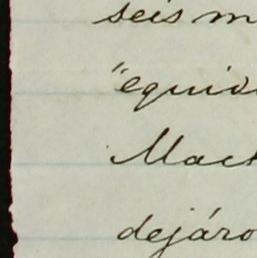 seis m
"equid
Mach
dejáro